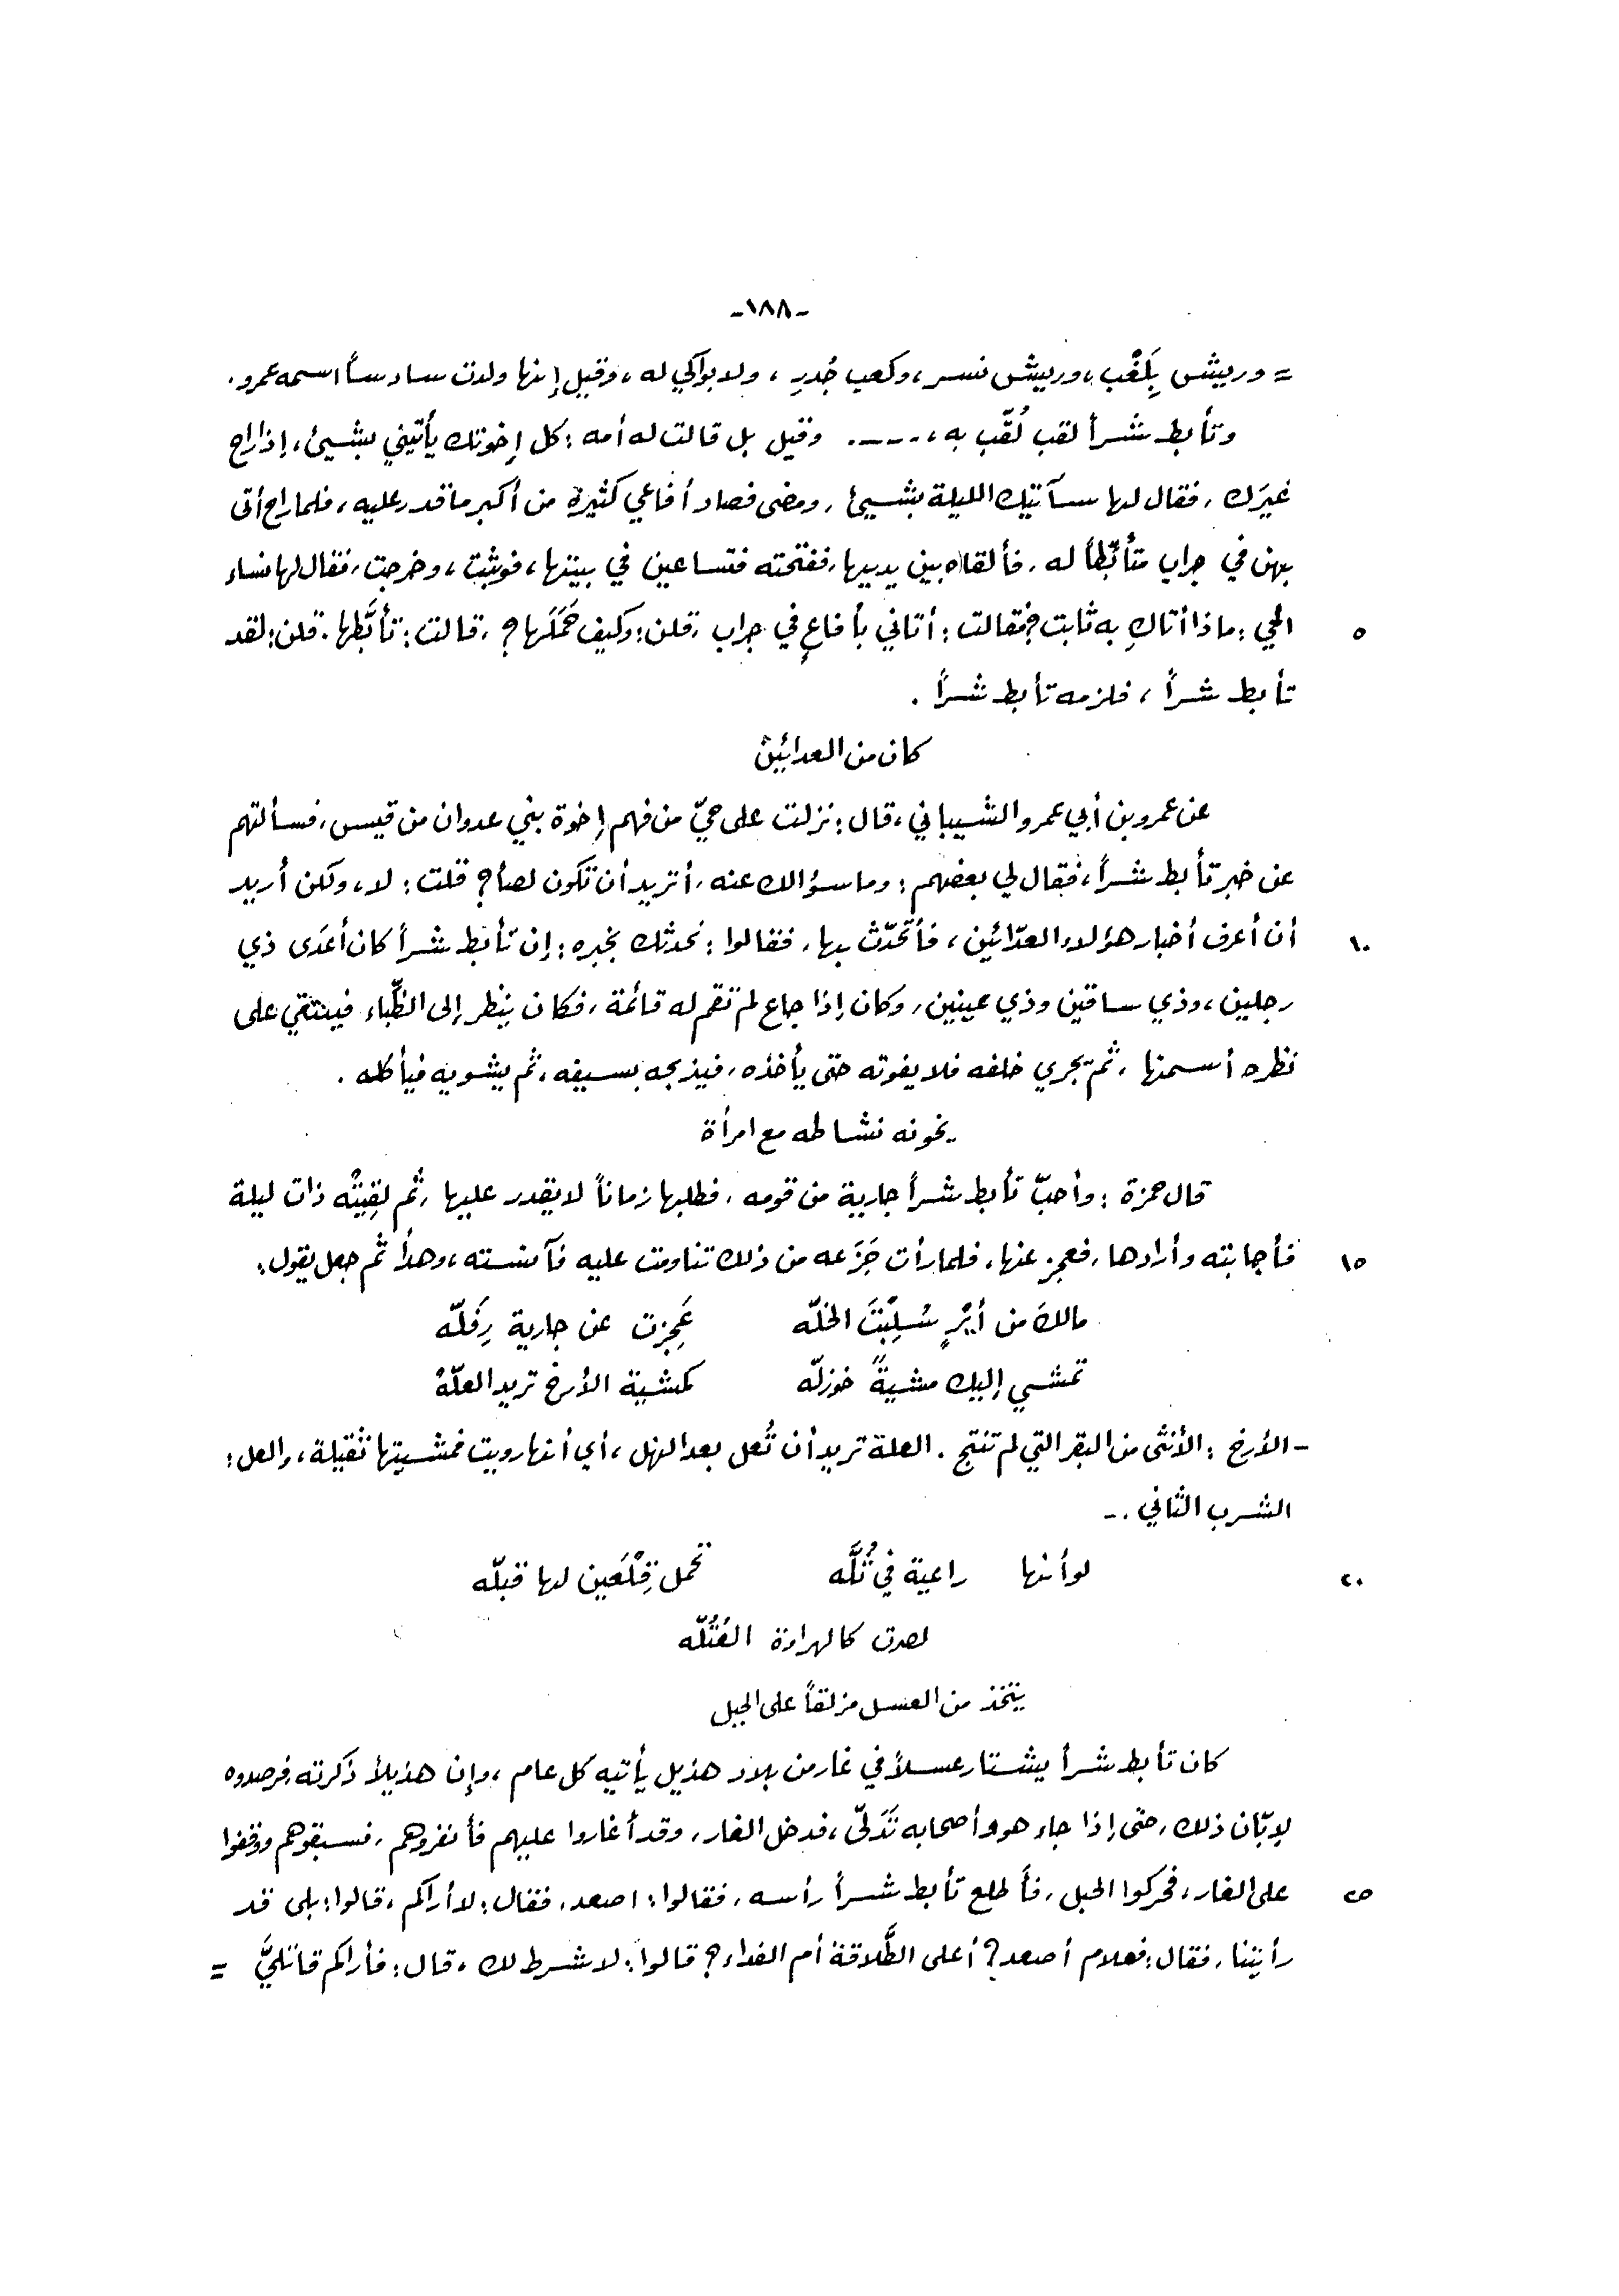 -١٨٨-
= وريش بِلَغْب، وريش نسر، وكعب جُدر، ولا بواكي له، وقيل إنها ولدت سادساً اسمه عمرو.
وتأبط شراً لقب لُقّب به، ----. وقيل بل قالت له أمه: كل إخوتك يأتيني بشيئ، إذا راح
غيرَك، فقال لها سآتيك الليلة بشيئ، ومضى فصاد أفاعي كثيرة من أكبر ما قدر عليه، فلما راح أتى
بهن في جراب متأبِّطاً له، فألقاه بين يديها، ففتحته فتساعين في بيتها، فوثبت، وخرجت، فقال لها نساء
الحي: ماذا أتاكِ به ثابت؟ فقالت: أتاني بأفاعٍ في جراب، قلن: وكيف حَمَلَها؟، قالت: تأبَّطها. قلن: لقد
٥
تأبط شراً، فلزمه تأبط شراً.
كان من العدائين
عن عمرو بن أبي عمرو الشيباني، قال: نزلت على حيّ من فهم إخوة بني عدوان من قيس، فسألتهم
عن خبر تأبط شراً، فقال لي بعضهم: وما سؤالك عنه، أتريد أن تكون لصاً؟ قلت: لا، ولكن أريد
أن أعرف أخبار هؤلاء العدّائين، فأتحدّث بها، فقالوا: نحدثك بخبره: إن تأبط شراً كان أعدَى ذي
١٠
رجلين، وذي ساقين وذي عينين، وكان إذا جاع لم تقم له قائمة، فكان ينظر إلى الظِّباء فينتقي على
نظره أسمنها، ثم يجري خلفه فلا يفوته حتى يأخذه، فيذبحه بسيفه، ثم يشويه فيأكله.
يخونه نشاطه مع امرأة
قال حمزة: وأحبّ تأبط شراً جارية من قومه، فطلبها زماناً لا يقدر عليها، ثم لقِيَتْه ذات ليلة
فأجابته وأرادها، فعجز عنها، فلما رأت جَزَعه من ذلك تناومت عليه فآنسته، وهدأ ثم جعل يقول:
١٥
مالكَ من أيْرٍ سُلِبْتَ الخلّه عَجِزت عن جارية رِفَلّه
تمشي إليك مشيةً خوزلّه كمشية الأرخ تريد العلّهْ
- الأرخ: الأنثى من البقر التي لم تنتج. العلة تريد أن تُعل بعد النهل، أي أنها رويت فمشيتها ثقيلة، والعل:
الشرب الثاني.-
لو أنها راعية في ثُلَّه تحمل قِلْعَين لها قبلّه
٢٠
لصرت كالهراوة العُتُلّه
يتخذ من العسل مزلقاً على الجبل
كان تأبط شراً يشتار عسلاً في غار من بلاد هذيل يأتيه كل عام، وإن هذيلاً ذكرته فرصدوه
لإبّان ذلك، حتى إذا جاء هو وأصحابه تَدَلّى، فدخل الغار، وقد أغاروا عليهم فأنفروهم، فسبقوهم ووقفوا
على الغار، فحركوا الحبل، فأطلع تأبط شراً رأسه، فقالوا: اصعد، فقال: لا أراكم، قالوا: بلى قد
٢٥
رأيتنا، فقال: فعلام أصعد؟ أعلى الطَّلاقة أم الفداء؟ قالوا: لا شرط لك، قال: فأراكم قاتليَّ =